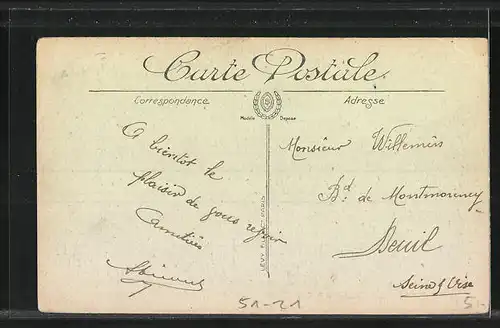 Carte Postale
Correspondance
Adresse
Modèle Déposé
A bientot le
plaisir de vous revoir
Amitiés
LEVY FILS & Cie PARIS
Monsieur Willemin
Bd. de Montmorency
Deuil
Seine & Oise
51-21
51-